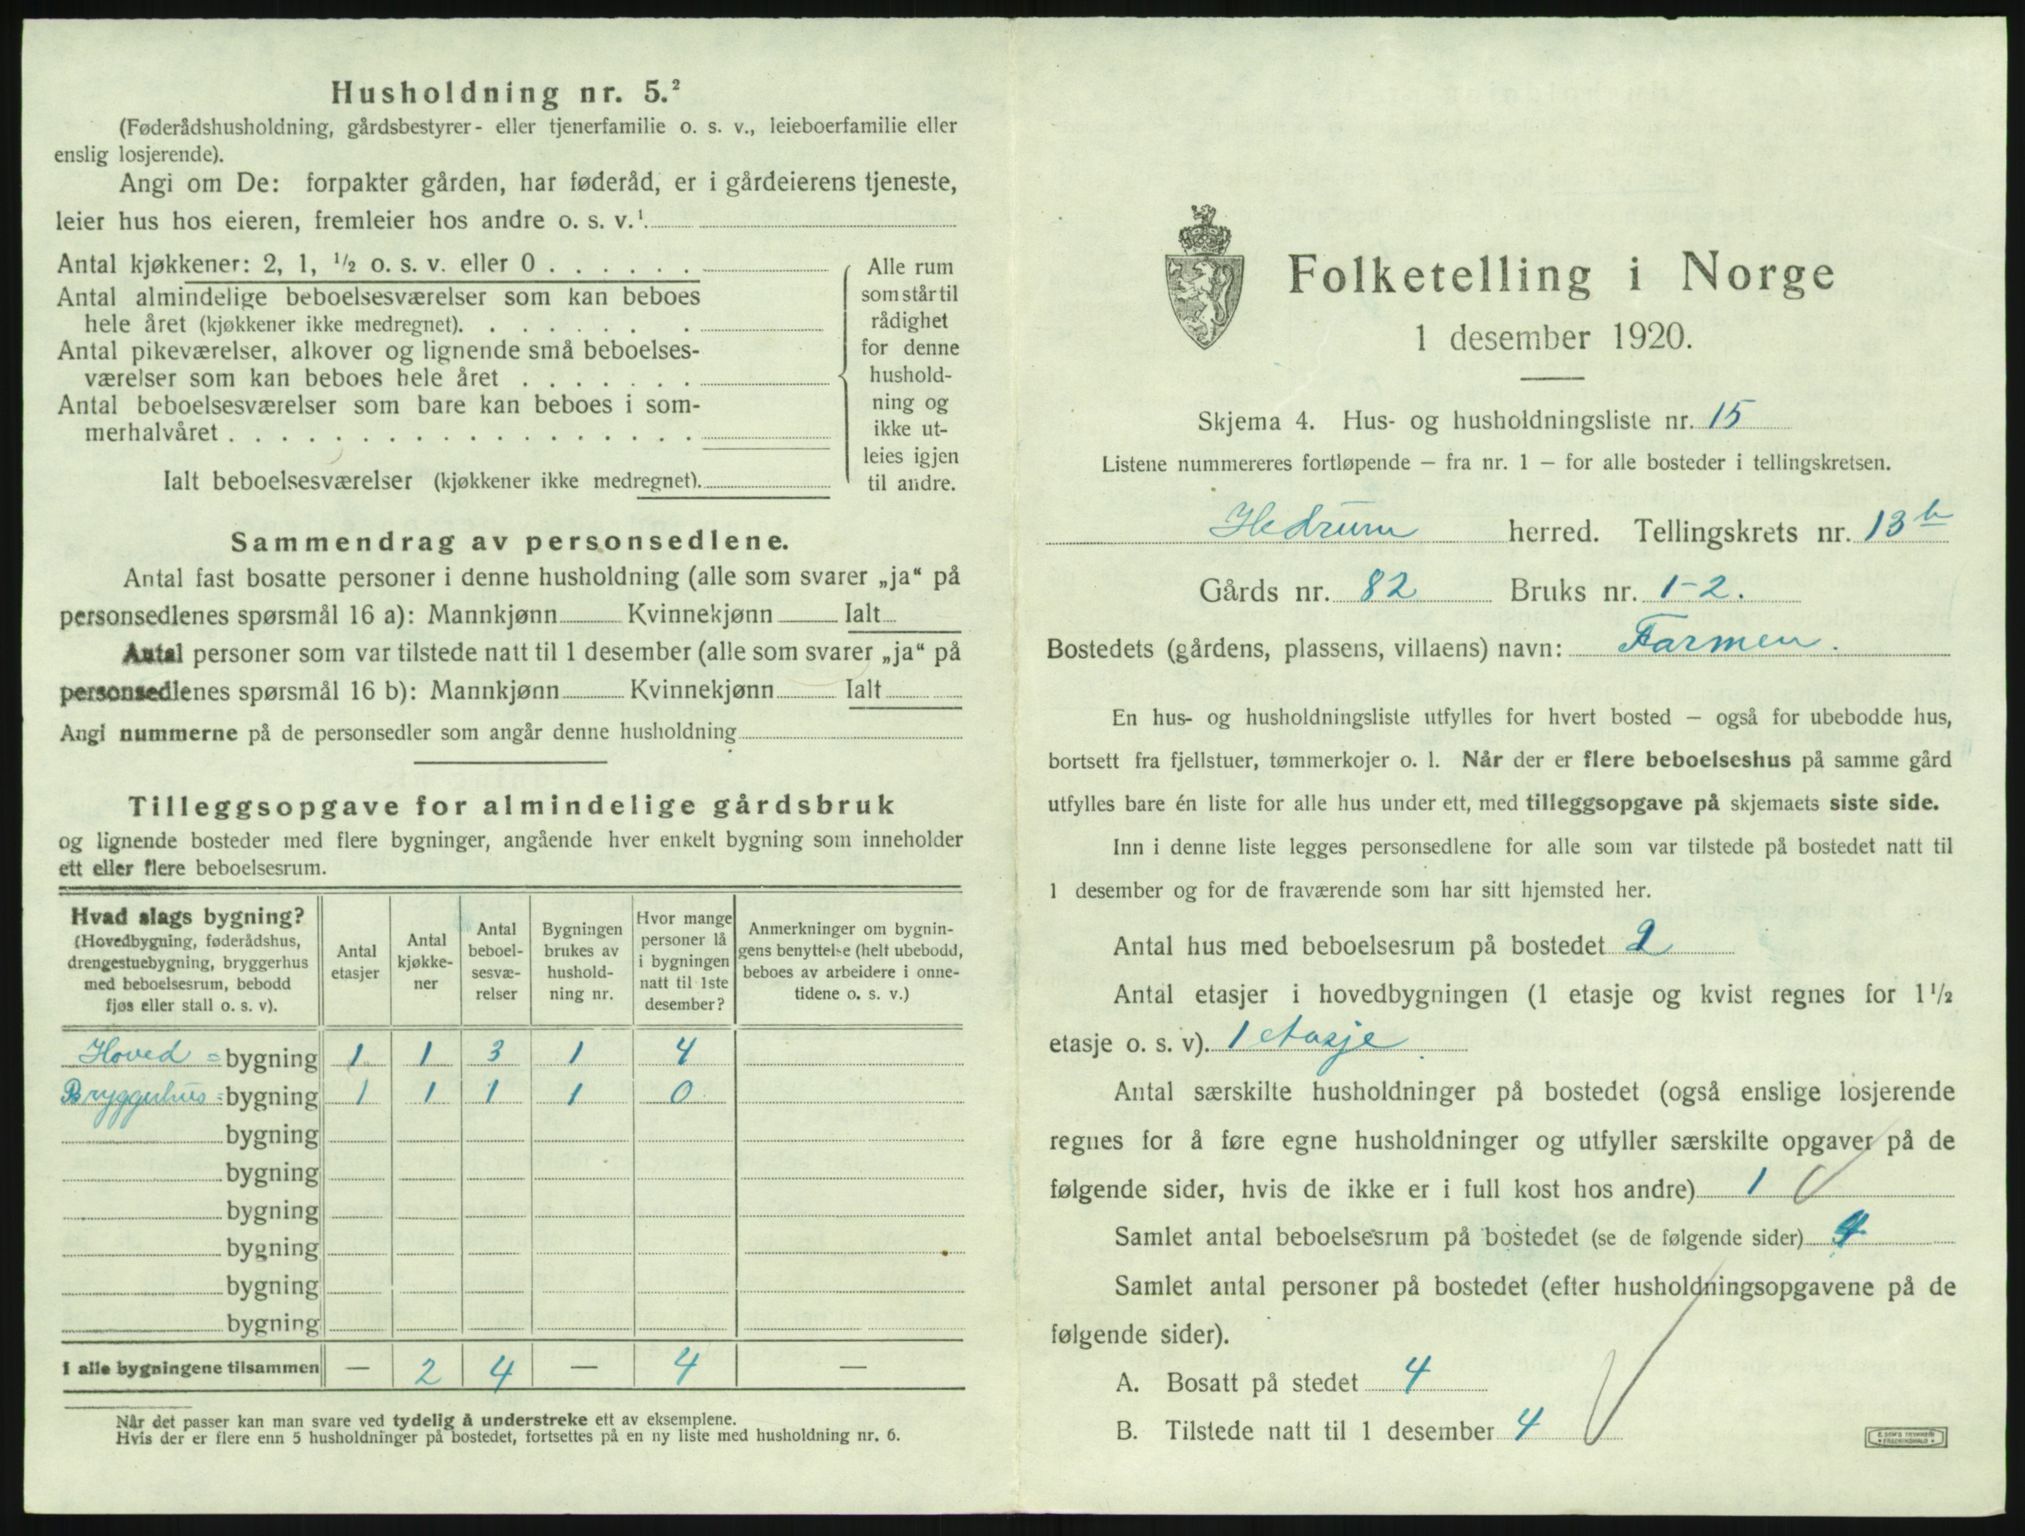 Husholdning nr. 5.²
(Føderådshusholdning, gårdsbestyrer- eller tjenerfamilie o. s. v., leieboerfamilie eller
enslig losjerende).
Angi om De: forpakter gården, har føderåd, er i gårdeierens tjeneste,
leier hus hos eieren, fremleier hos andre o. s. v.¹
Antal kjøkkener: 2, 1, ½ o. s. v. eller 0 . . . . . .
Antal almindelige beboelsesværelser som kan beboes
hele året (kjøkkener ikke medregnet). . . . . . . .
Antal pikeværelser, alkover og lignende små beboelses-
værelser som kan beboes hele året . . . . . . .
Antal beboelsesværelser som bare kan beboes i som-
merhalvåret . . . . . . . . . . . . . . . . . .
Ialt beboelsesværelser (kjøkkener ikke medregnet).
Alle rum
som står til
rådighet
for denne
hushold-
ning og
ikke ut-
leies igjen
til andre.
Sammendrag av personsedlene.
Antal fast bosatte personer i denne husholdning (alle som svarer „ja“ på
personsedlenes spørsmål 16 a): Mannkjønn Kvinnekjønn Ialt
Antal personer som var tilstede natt til 1 desember (alle som svarer „ja“ på
personsedlenes spørsmål 16 b): Mannkjønn Kvinnekjønn Ialt
Angi nummerne på de personsedler som angår denne husholdning
Tilleggsopgave for almindelige gårdsbruk
og lignende bosteder med flere bygninger, angående hver enkelt bygning som inneholder
ett eller flere beboelsesrum.
Hvad slags bygning?
(Hovedbygning, føderådshus,
drengestuebygning, bryggerhus
med beboelsesrum, bebodd
fjøs eller stall o. s. v).
Antal
etasjer
Antal
kjøkke-
ner
Antal
beboel-
sesvæ-
relser
Bygningen
brukes av
hushold-
ning nr.
Hvor mange
personer lå
i bygningen
natt til 1ste
desember?
Anmerkninger om bygnin-
gens benyttelse (helt ubebodd,
beboes av arbeidere i onne-
tidene o. s. v.)
Hoved = bygning 1 1 3 1 4
Bryggerhus = bygning 1 1 1 1 0
bygning
bygning
bygning
bygning
bygning
bygning
I alle bygningene tilsammen — 2 4 — 4 —
Når det passer kan man svare ved tydelig å understreke ett av eksemplene.
Hvis der er flere enn 5 husholdninger på bostedet, fortsettes på en ny liste med husholdning nr. 6.
Folketelling i Norge
1 desember 1920.
Skjema 4. Hus- og husholdningsliste nr. 15
Listene nummereres fortløpende — fra nr. 1 — for alle bosteder i tellingskretsen.
Hedrum herred. Tellingskrets nr. 13 b
Gårds nr. 82 Bruks nr. 1-2.
Bostedets (gårdens, plassens, villaens) navn: Farmen.
En hus- og husholdningsliste utfylles for hvert bosted — også for ubebodde hus,
bortsett fra fjellstuer, tømmerkojer o. l. Når der er flere beboelseshus på samme gård
utfylles bare én liste for alle hus under ett, med tilleggsopgave på skjemaets siste side.
Inn i denne liste legges personsedlene for alle som var tilstede på bostedet natt til
1 desember og for de fraværende som har sitt hjemsted her.
Antal hus med beboelsesrum på bostedet 2
Antal etasjer i hovedbygningen (1 etasje og kvist regnes for 1½
etasje o. s. v). 1 etasje
Antal særskilte husholdninger på bostedet (også enslige losjerende
regnes for å føre egne husholdninger og utfyller særskilte opgaver på de
følgende sider, hvis de ikke er i full kost hos andre) 1
Samlet antal beboelsesrum på bostedet (se de følgende sider) 4
Samlet antal personer på bostedet (efter husholdningsopgavene på de
følgende sider).
A. Bosatt på stedet 4
B. Tilstede natt til 1 desember 4